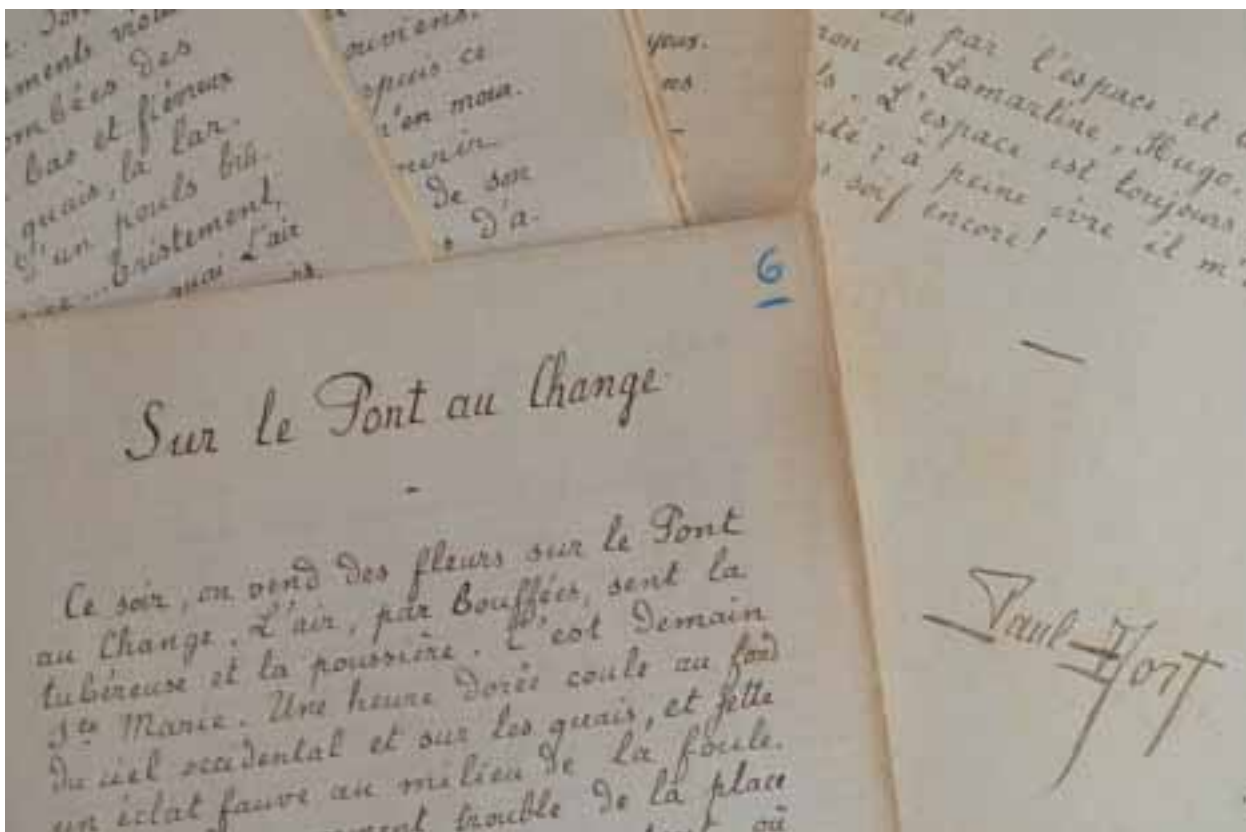 ombées des
bas et fiévreux
quais, la lar.
d'un pouls bili.
... Tristement,
quai L'air
ouviens.
epuis ce
n'en mour.
de son
d'a.
yeux.
es par l'espace et
ron et Lamartine, Hugo.
ls. L'espace est toujours
uté ; à peine ivre et m'
soif encore !
6
Sur le Pont au Change
Ce soir, on vend des fleurs sur le Pont
au Change. L'air, par bouffées, sent la
tubéreuse et la poussière. C'est demain
Ste Marie. Une heure dorée coule au fond
du ciel occidental et sur les quais, et jette
un éclat fauve au milieu de la foule.
trouble de la place
où
Paul Fort